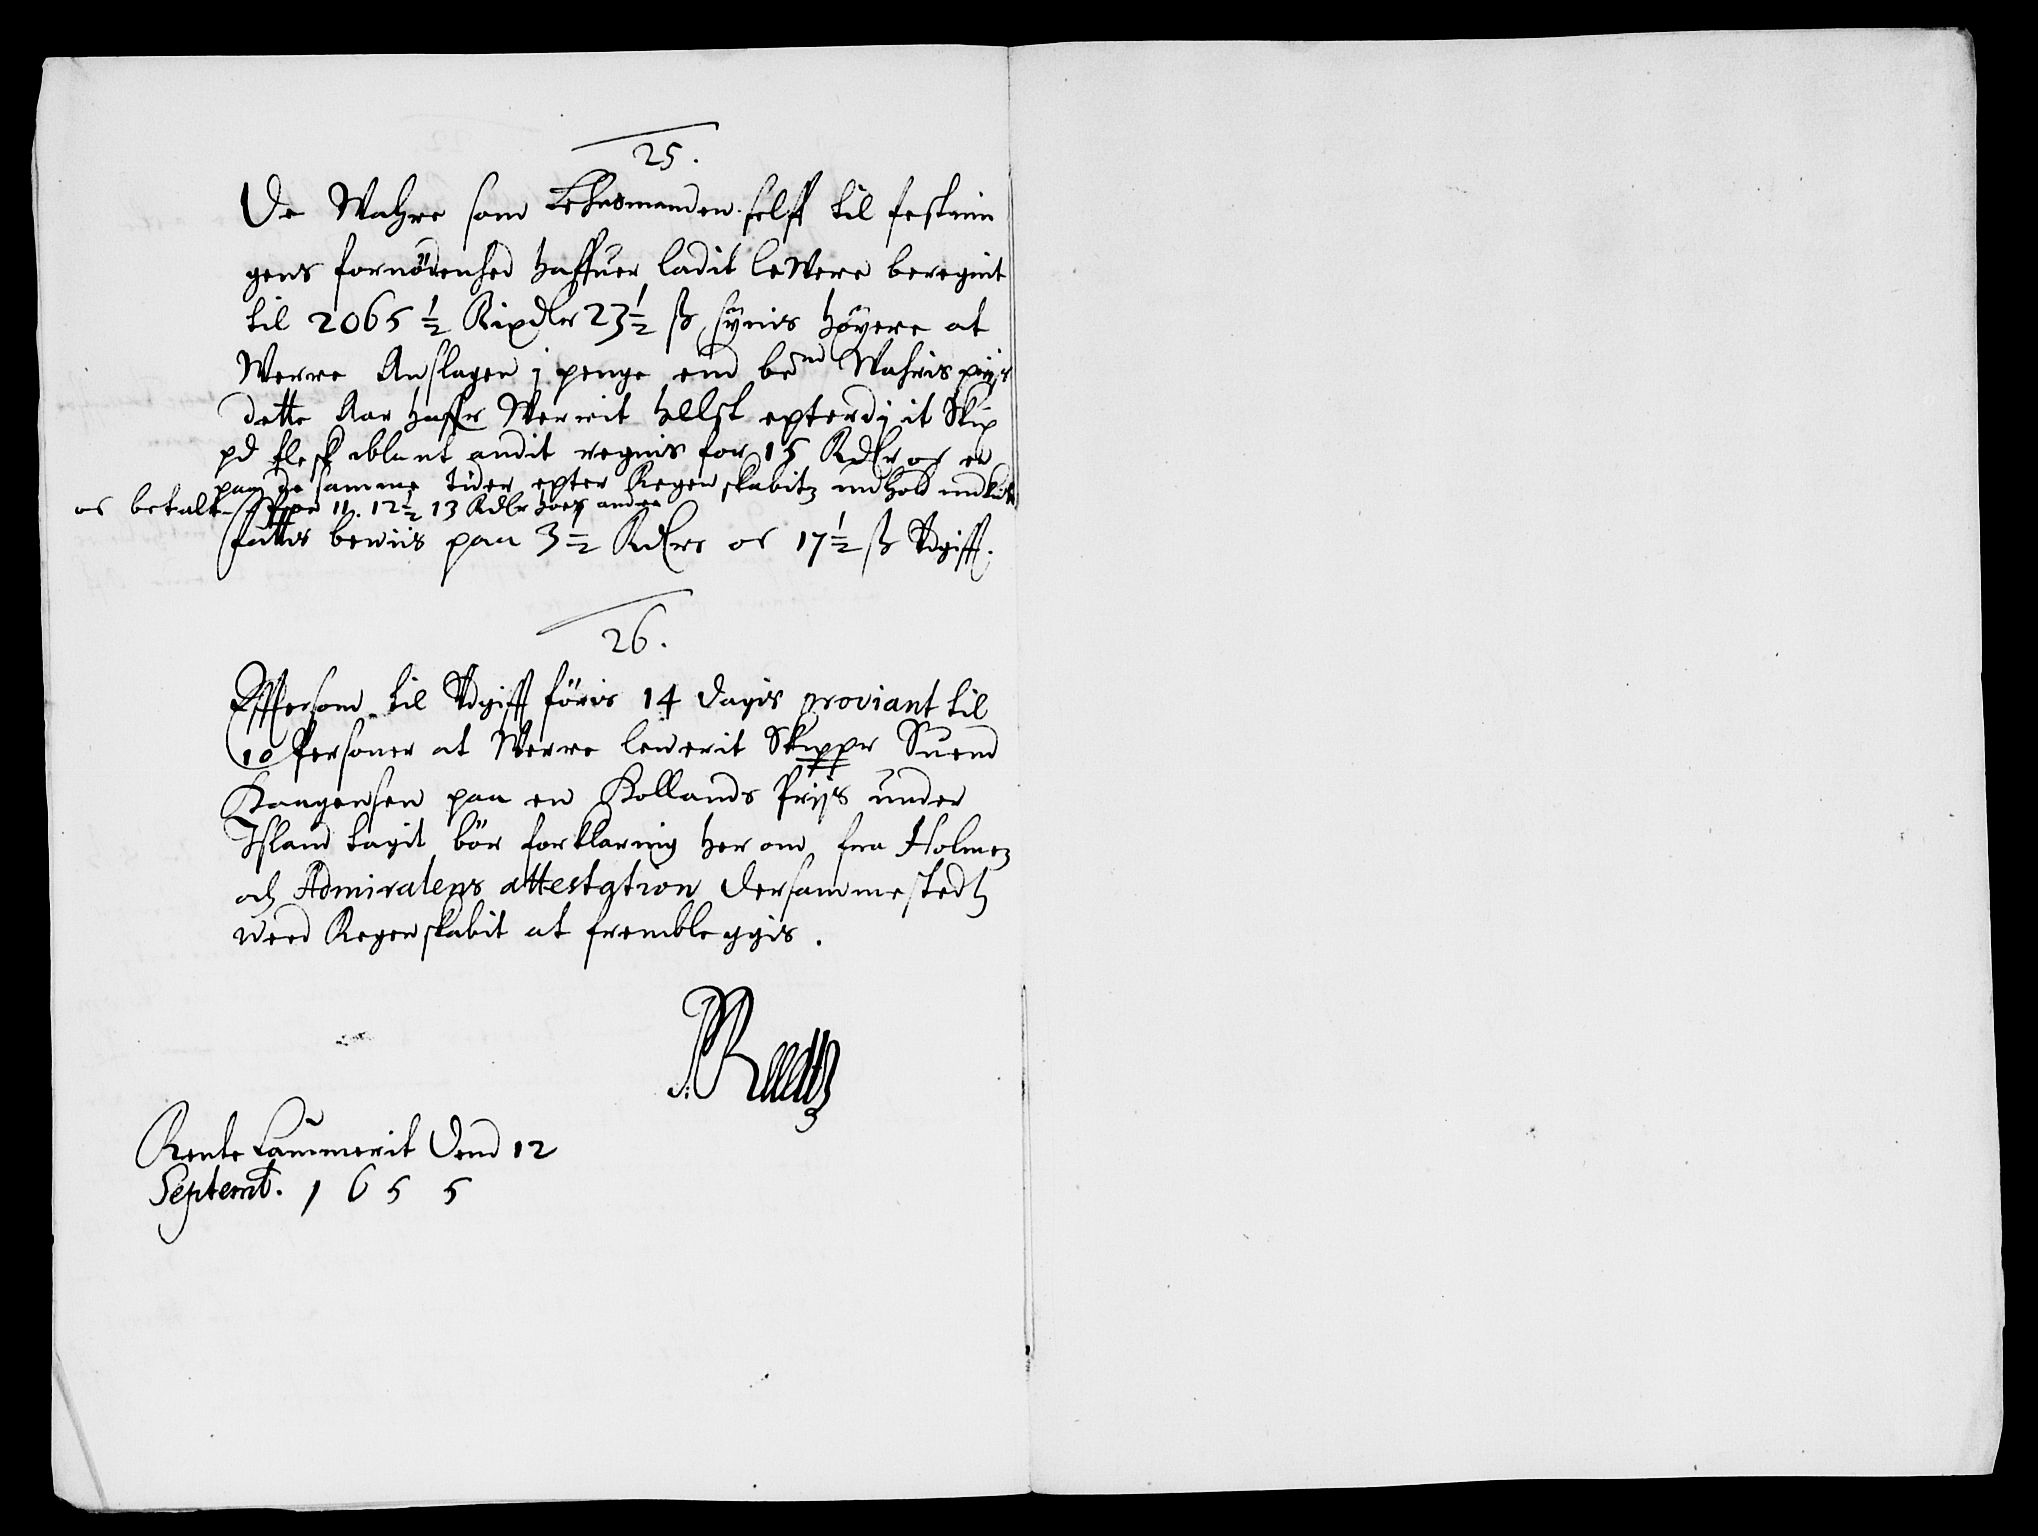 25.
De Wahre som Lehnsmanden self til festnin
gens fornödenhed haffuer ladit lewere beregnit
til 2065 ½ Rixdlr 23½ ß synis höyere at
Werre Anslagen j penge end bemd Wahris prijs
dette Aar haffr Werrit helst epterdj it Skip
pd flesk iblant andit regnis for 15 Rdlr oc er
paa de samme tider epter Regenskabitz indhold indkiöbt
oc betalt 11. 12½ 13 Rdlr hoes andre
fattis beuiis paa 3½ Rdlrs oc 17½ ß Vdgifft.
26.
Effterson til Vdgifft föris 14 dagis proviant til
10 Personer at Werre leuerit Skipper Suend
Haagensen paa en Hollands Prijs under
Island tagit bör forklaring her om fra Holmen
och Admiralens attestation dersammestedtz
weed Regenskabit at frembleggis.
Reedtz
Rente Cammerit Dend 12
Septemb. 1655